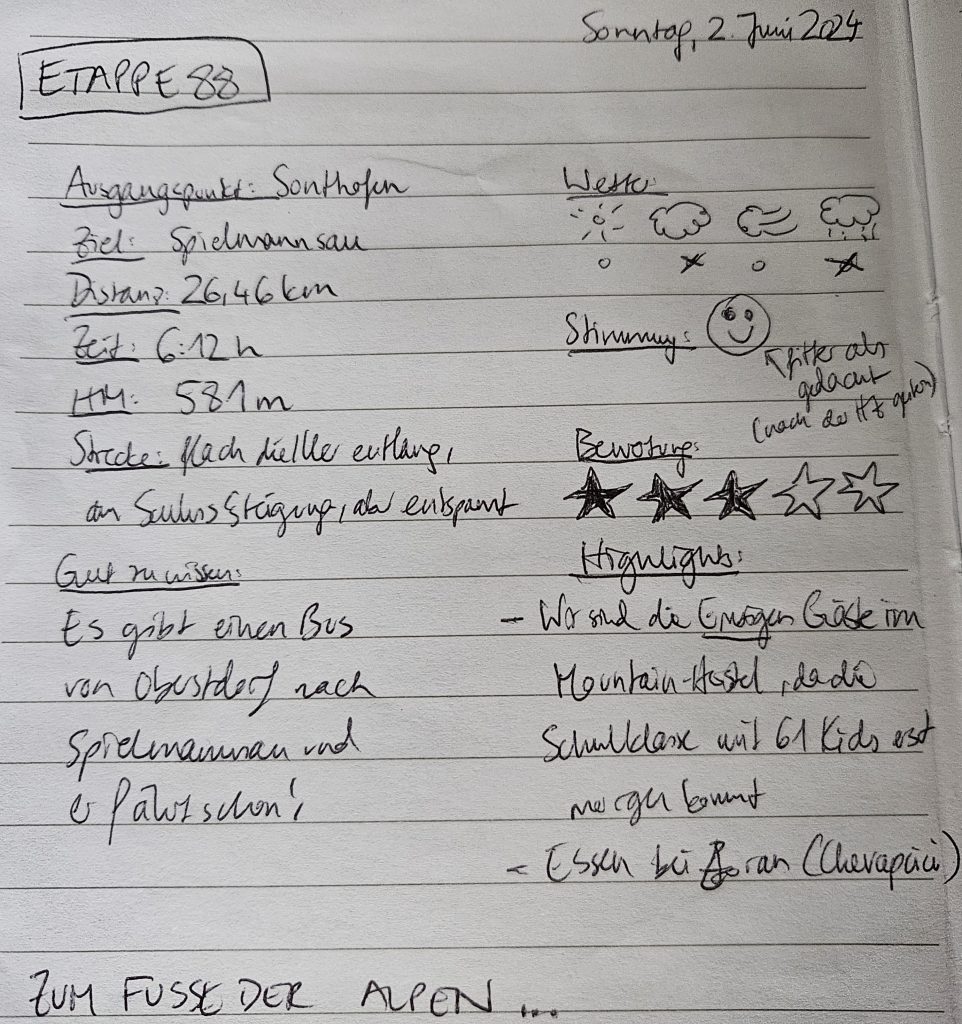 Sonntag, 2. Juni 2024
ETAPPE 88
Ausgangspunkt: Sonthofen
Ziel: Spielmannsau
Distanz: 26,46 km
Zeit: 6:12 h
HM: 581 m
Strecke: flach die Iller entlang,
am Schluss Steigung, aber entspannt
Gut zu wissen:
Es gibt einen Bus
von Oberstdorf nach
Spielmannsau und
er fährt schon!
Wetter:
Stimmung:
fitter als
gedacht
(nach der
Bewertung:
Highlights:
- Wir sind die Einzigen Gäste im
Mountain-Hostel, da die
Schulklasse mit 61 Kids erst
morgen kommt
- Essen bei Zoran (Chevapcici)
ZUM FUSSE DER ALPEN ...